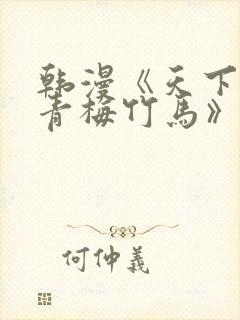 韩漫《天下
青梅竹马》
何仲義